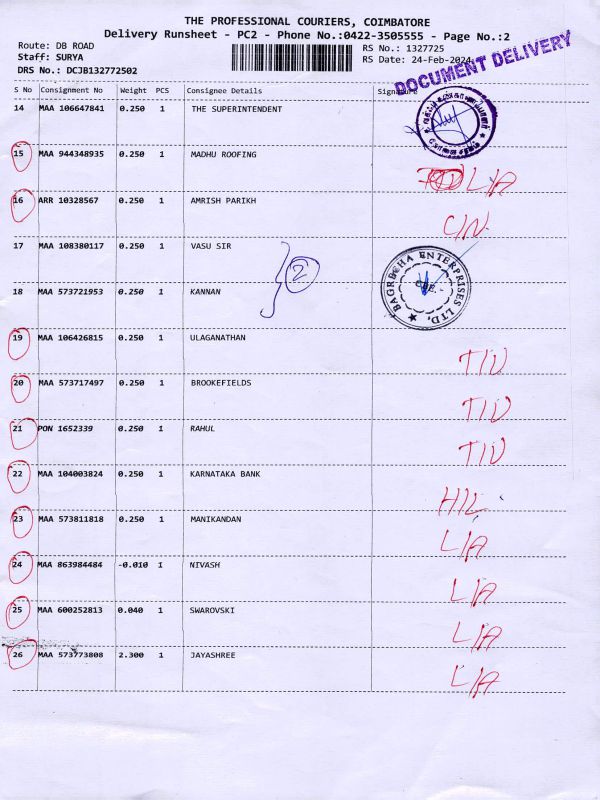 THE PROFESSIONAL COURIERS, COIMBATORE
Delivery Runsheet - PC2 - Phone No.:0422-3505555 - Page No.:2
Route: DB ROAD RS No.: 1327725
Staff: SURYA RS Date: 24-Feb-2024
DRS No.: DCJB132772502
DOCUMENT DELIVERY
S No Consignment No Weight PCS Consignee Details Signature
14 MAA 106647841 0.250 1 THE SUPERINTENDENT
15 MAA 944348935 0.250 1 MADHU ROOFING L/A
16 ARR 10328567 0.250 1 AMRISH PARIKH C/N
17 MAA 108380117 0.250 1 VASU SIR
2
BAGRECHA ENTERPRISES LTD.
CBE.
18 MAA 573721953 0.250 1 KANNAN
19 MAA 106426815 0.250 1 ULAGANATHAN T/D
20 MAA 573717497 0.250 1 BROOKEFIELDS T/D
21 PON 1652339 0.250 1 RAHUL T/D
22 MAA 104003824 0.250 1 KARNATAKA BANK H/L
23 MAA 573811818 0.250 1 MANIKANDAN L/A
24 MAA 863984484 -0.010 1 NIVASH L/A
25 MAA 600252813 0.040 1 SWAROVSKI L/A
26 MAA 573773808 2.300 1 JAYASHREE L/A